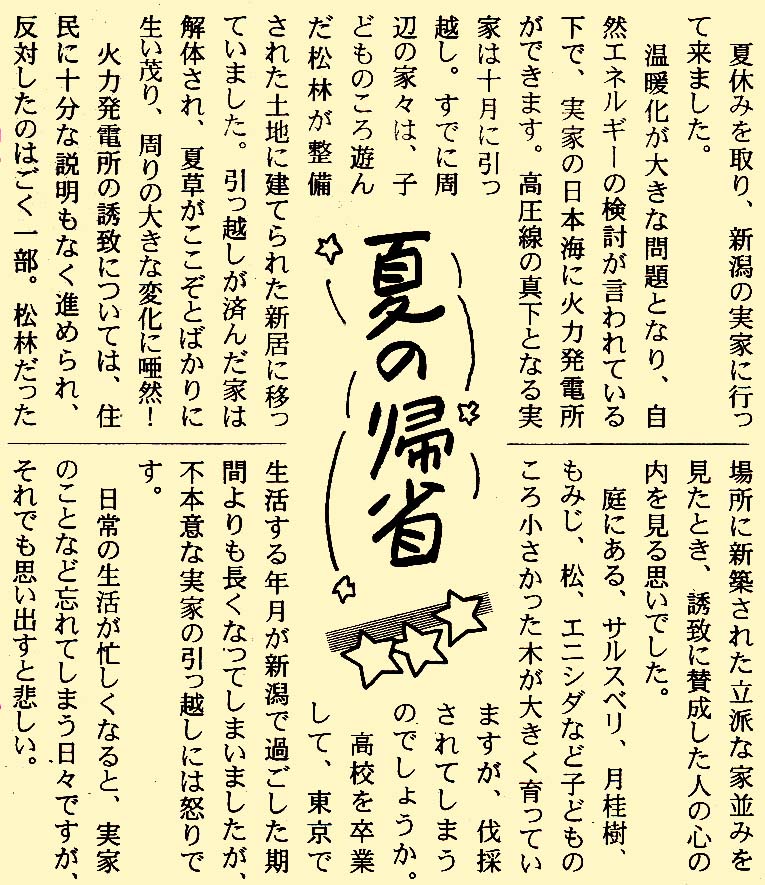 夏の帰省
夏休みを取り、新潟の実家に行っ
て来ました。
温暖化が大きな問題となり、自
然エネルギーの検討が言われている
下で、実家の日本海に火力発電所
ができます。高圧線の真下となる実
家は十月に引っ
越し。すでに周
辺の家々は、子
どものころ遊ん
だ松林が整備
された土地に建てられた新居に移っ
ていました。引っ越しが済んだ家は
解体され、夏草がここぞとばかりに
生い茂り、周りの大きな変化に唖然！
火力発電所の誘致については、住
民に十分な説明もなく進められ、
反対したのはごく一部。松林だった
場所に新築された立派な家並みを
見たとき、誘致に賛成した人の心の
内を見る思いでした。
庭にある、サルスベリ、月桂樹、
もみじ、松、エニシダなど子どもの
ころ小さかった木が大きく育ってい
ますが、伐採
されてしまう
のでしょうか。
高校を卒業
して、東京で
生活する年月が新潟で過ごした期
間よりも長くなってしまいましたが、
不本意な実家の引っ越しには怒りで
す。
日常の生活が忙しくなると、実家
のことなど忘れてしまう日々ですが、
それでも思い出すと悲しい。